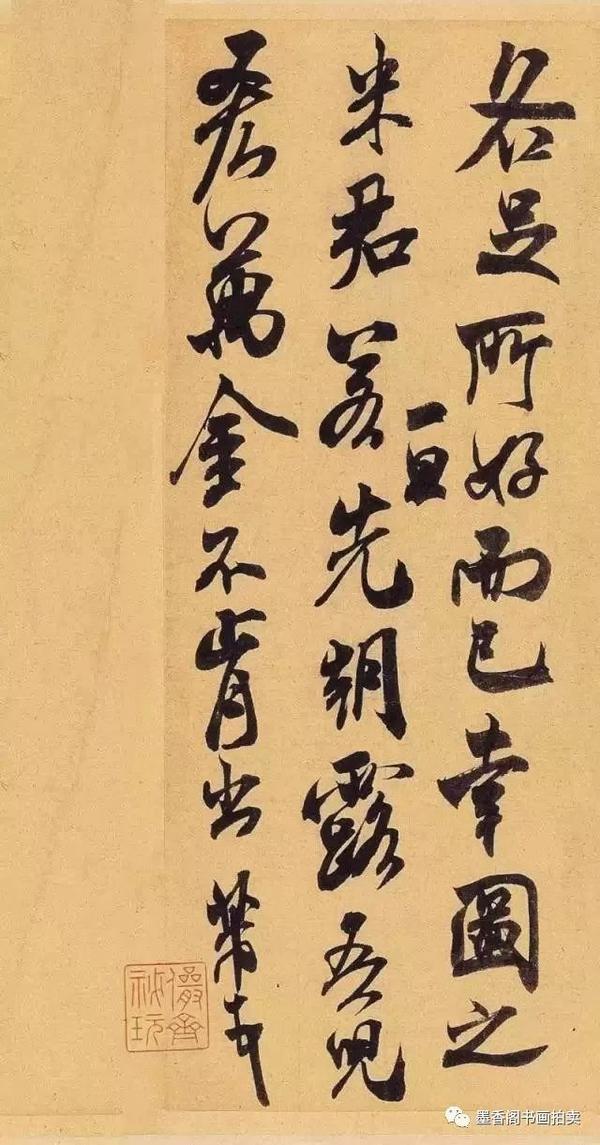 各足所好而已幸圖之
一旦
米君若先朝露吾兒
吝萬金不肯出 芾頓首
儼齋
祕玩
墨香阁书画拍卖